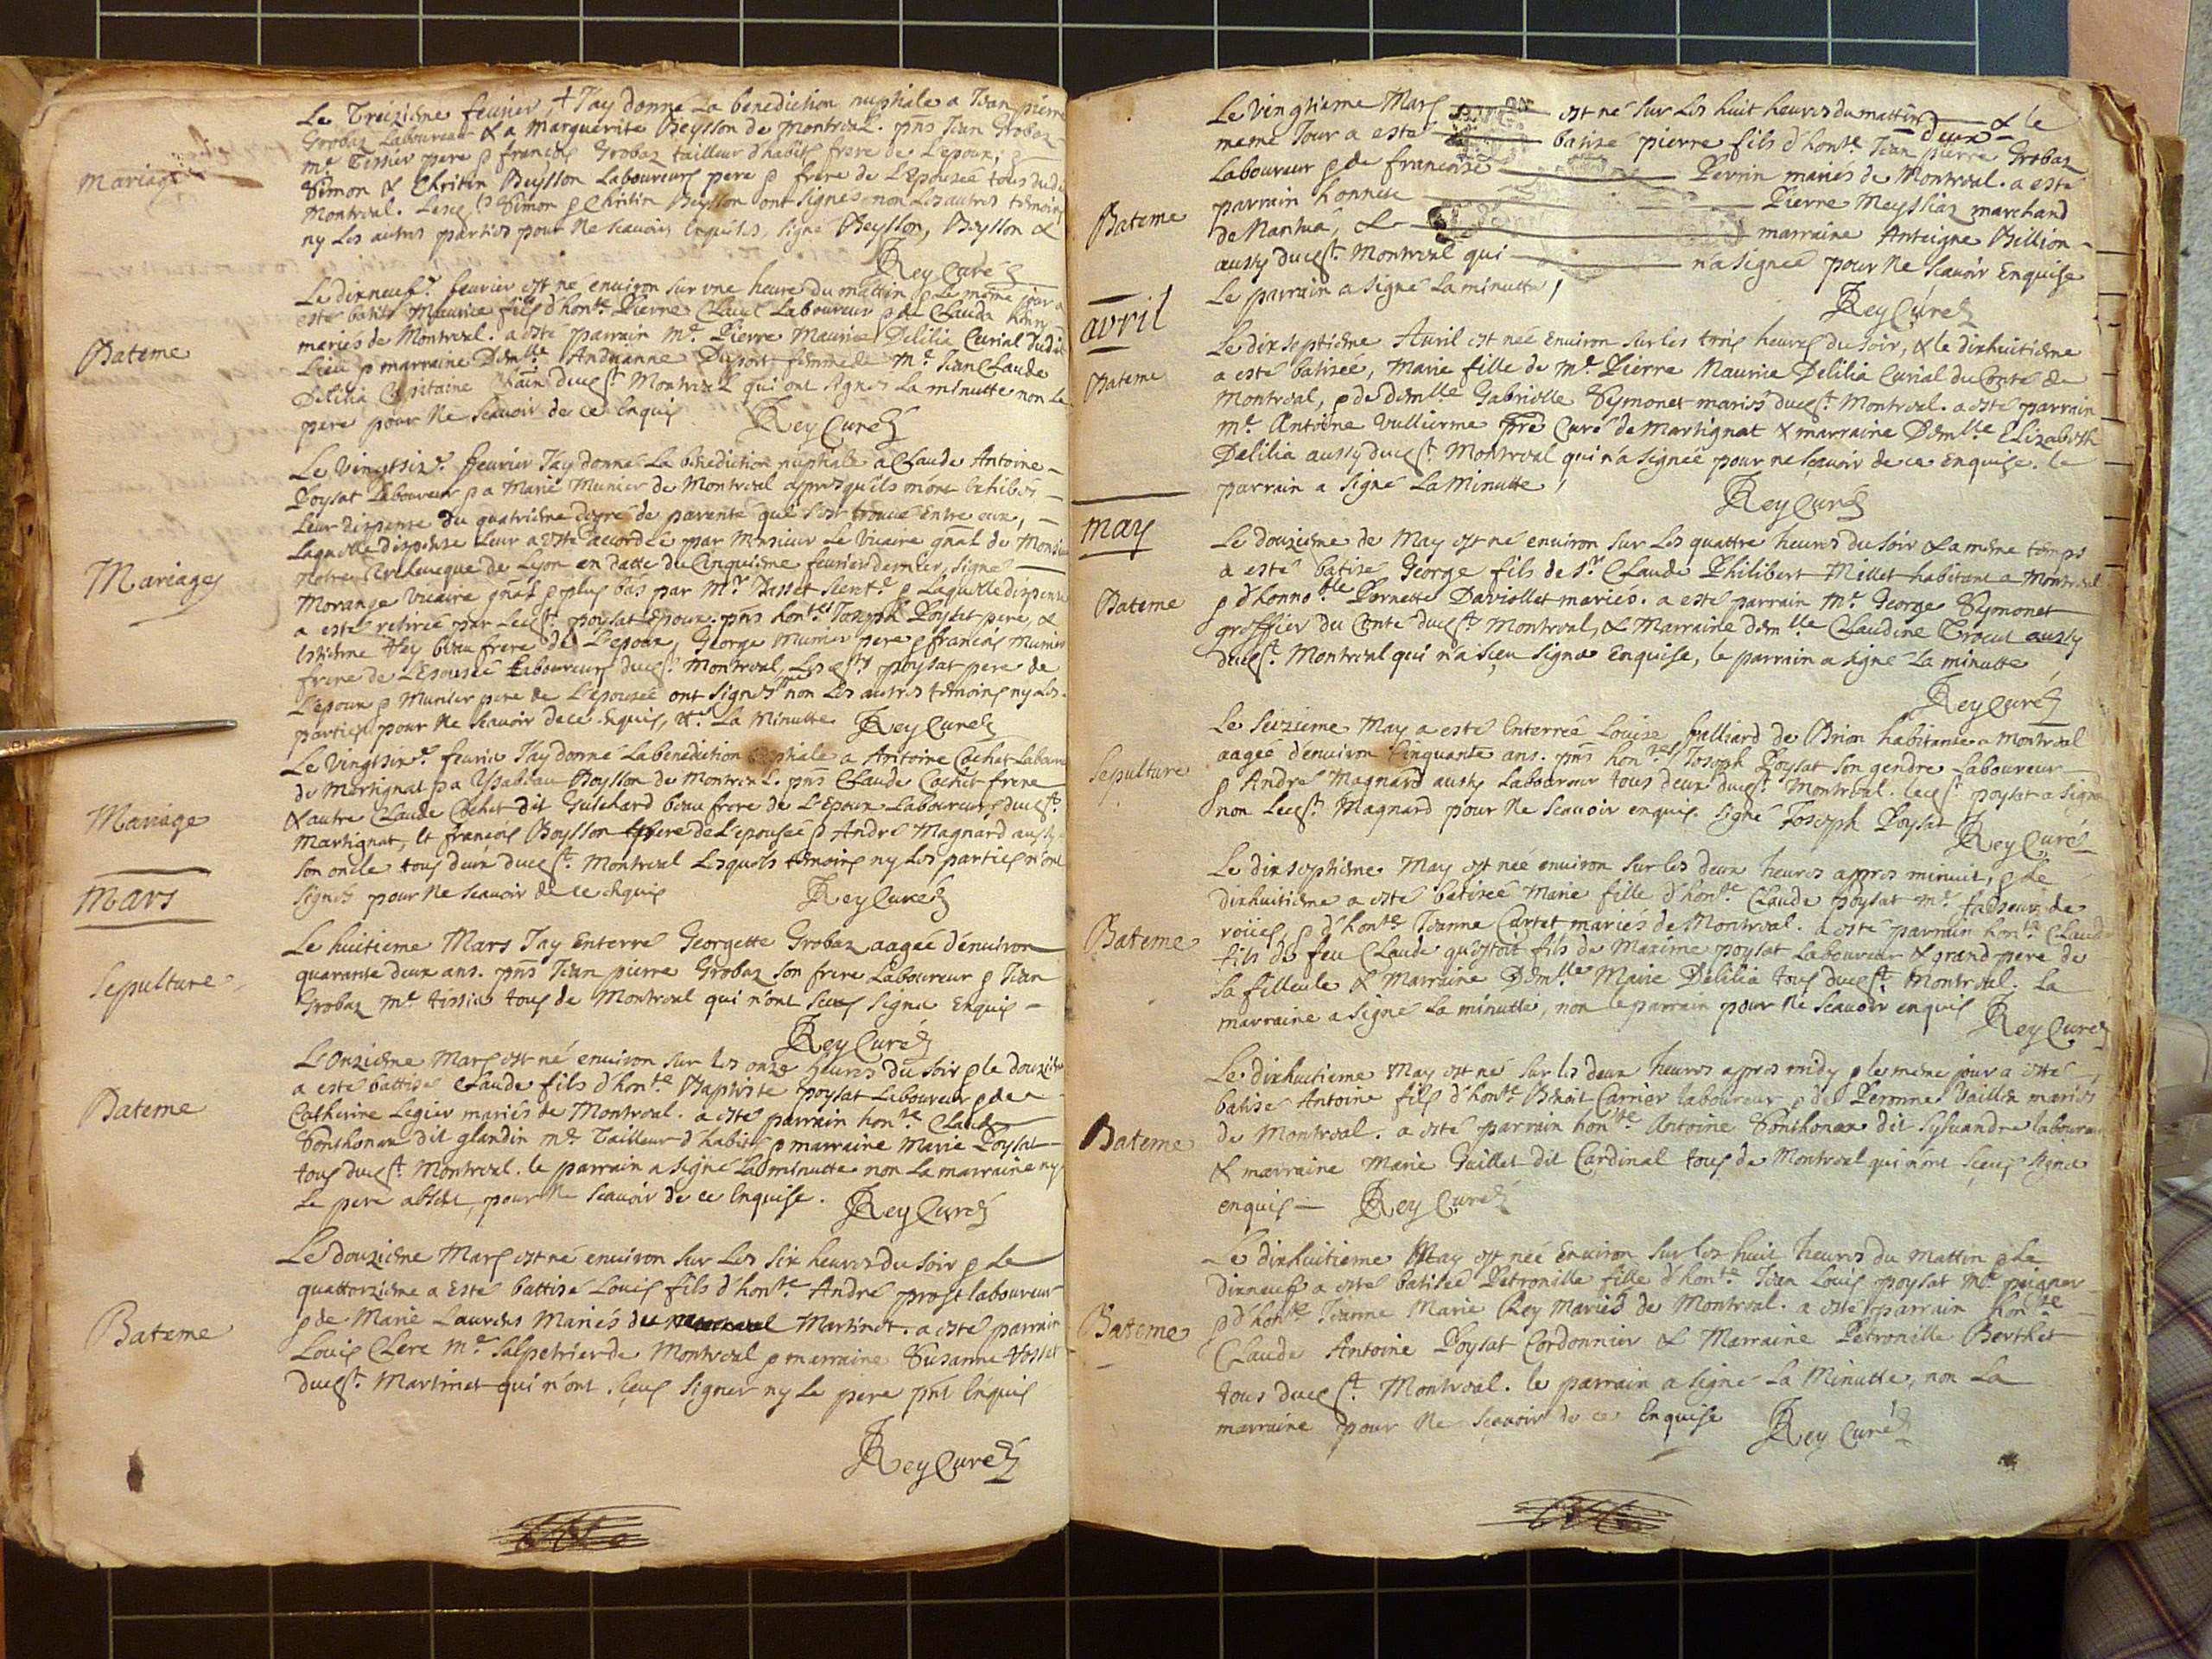 Mariage
Le Treizieme feurier, + J'ay donné La benediction nuptiale a Jean pierre
Grobaz Laboureur & a Marguerite Beysson de Montreal. pns Jean Grobaz
me Tissier pere & françois Grobaz tailleur d'habits frere de L'epoux,
Simon & Christin Beysson Laboureurs pere & frere de L'Epousée tous dud
Montreal. Lesqls Simon & Christin Beysson ont signés non Les autres temoins
ny Les autres parties pour ne scauoir enquises, signé Beysson, Beysson &
Rey Curé
Bateme
Le dixneufe feurier est né enuiron sur vne heure du mattin & Le meme jour a
esté batisé Maurice fils d'honte Pierre Claude Laboureur & de Clauda
mariés de Montreal. a esté parrain Me Pierre Maurice Delilia Curial dudit
Lieu & marraine Demlle Andreanne Duport femme de Me Jean Claude
Delilia Capitaine Chatn dudst Montreal qui ont signés La minutte non Le
pere pour Ne scauoir de ce Enquis Rey Curé
Mariages
Le Vingtsixe feurier J'ay donné La benediction nuptiale a Claude Antoine
Poysat Laboureur & a Marie Munier de Montreal apres qu'ils m'ont exhibés
Leur dispense du quatrieme degré de parenté qui s'est trouué Entre eux,
Laquelle dispense Leur a esté accordée par Monsieur Le Vicaire gnal de Monsieur
Notre Archeueque de Lyon en datte du Cinquieme feurier dernier, signé
Morange Vicaire gnal & plus bas par Mr Basset secrte & Laquelle dispense
a esté retirée par Ledst poysat Epoux. pns hontes Joseph Poysat pere, &
Estienne Rey beau frere de L'epoux, George Munier pere & francois Munier
frere de L'Epousée Laboureurs dudst Montreal, Lesdsts poysat pere de
L'epoux & Munier pere de L'epousée ont signés non Les autres temoins ny Les
parties pour Ne scauoir de ce Enquis, La Minutte Rey Curé
Mariage
Le Vingtsixe feurier J'ay donné La benediction nuptiale a Antoine Cochet Laboureur
de Martignat & a Ysabeau Beysson de Montreal. pns Claude Cochet frere
& autre Claude Cochet dit Guichard beau frere de L'Epoux Laboureurs dudst
Martignat, et francois Beysson frere de L'epousée & André Magnard aussy
son oncle tous deux dudst Montreal Lesquels temoins ny Les parties n'ont
signés pour Ne scauoir de ce enquis Rey Curé
Mars
Sepulture
Le huitieme Mars J'ay Enterré Georgette Grobaz aagée d'enuiron
quarante deux ans. pns Jean pierre Grobaz son frere Laboureur & Jean
Grobaz me tissier tous de Montreal qui n'ont sceus signer Enquis
Rey Curé
Bateme
L'Onzieme Mars est né enuiron sur Les onze heures du soir & le douzieme
a esté battisé Claude fils d'honte Baptiste Poysat Laboureur & de
Catherine Legier mariés de Montreal. a esté parrain honte Claude
Sonthonax dit glandin me Tailleur d'habits & marraine Marie Poysat
tous dudst Montreal. le parrain a signé La minutte non La marraine ny
Le pere absent, pour Ne scauoir de ce Enquise. Rey Curé
Bateme
Le douzieme Mars est né enuiron sur Les six heures du soir & Le
quattorzieme a Esté battisé Louis fils d'honte André prost laboureur
& de Marie Laurens Mariés du Martinet. a esté parrain
Louis Clerc Me Salpetrier de Montreal & marraine Susanne
dudst Martinet qui n'ont sceus signer ny Le pere pnt Enquis
Rey Curé
Bateme
Le Vingtieme Mars est né sur Les huit heures du mattin & le
meme Jour a esté batisé pierre fils d'honte Jean pierre Grobaz
Laboureur & de francoise Perrin mariés de Montreal. a esté
parrain honnete Pierre Meyssiaz marchand
de Nantua, & marraine Anteigne Billion
aussy dudst Montreal qui n'a signée pour Ne scauoir Enquise
Le parrain a signé La minutte,
Rey Curé
avril
Bateme
Le dixseptieme Auril est née Enuiron sur les trois heures du soir, & le dixhuitieme
a esté batisée, Marie fille de Me Pierre Maurice Delilia Curial du Conté de
Montreal, & de demlle Gabrielle Symonet mariés dudst Montreal. a esté parrain
Me Antoine Vullierme ptre Curé de Martignat & marraine Demlle Elizabeth
Delilia aussy dudst Montreal qui n'a signée pour ne scauoir de ce Enquise. le
parrain a signé La Minutte,
Rey Curé
may
Bateme
Le douzieme de May est né enuiron sur Les quattre heures du soir & a meme temps
a esté batisé George fils de Sr Claude Philibert Millet habitant a Montreal
& d'honnotle Pernette Dariollet mariés. a esté parrain Me George Symonet
greffier du Conté dudst Montreal, & Marraine demlle Claudine Trocu aussy
dudst Montreal qui n'a sceu signer Enquise, le parrain a signé La minutte
Rey Curé
Sepulture
Le Seizieme May a esté Enterrée Louise Julliard de Brion habitante a Montreal
aagée d'enuiron Cinquante ans. pns hontes Joseph Poysat son gendre Laboureur
& André Magnard aussy Laboureur tous deux dudst Montreal. ledst poysat a signé
non Ledst Magnard pour Ne scauoir enquis. signé Joseph Poysat
Rey Curé
Bateme
Le dixseptieme May est née enuiron sur les deux heures apres minuit, & Le
dixhuitieme a esté batisée Marie fille d'honte Claude Poysat me faiseur de
roües, & d'honte Jeanne Cartet mariés de Montreal. a esté parrain honte Claude
fils de feu Claude qu'estoit fils de Maxime poysat Laboureur & grand pere de
sa filleule & Marraine Demlle Marie Delilia tous dudst Montreal. La
marraine a signé La minutte, non le parrain pour Ne scauoir enquis Rey Curé
Bateme
Le dixhuitieme May est né sur les deux heures apres midy & le meme jour a esté
batisé Antoine fils d'honte Benoit Carrier laboureur & de Peronne Vaillen mariés
de Montreal. a esté parrain honte Antoine Sonthonax dit Syluandre laboureur
& marraine Marie Guillet dit Cardinal tous de Montreal qui n'ont sceus signer
enquis Rey Curé
Bateme
Le dixhuitieme May est née Enuiron sur les huit heures du mattin & Le
dixneufe a esté batisée Petronille fille d'honte Jean Louis poysat Me peigner
& d'honte Jeanne Marie Rey Mariés de Montreal. a esté parrain honte
Claude Antoine Poysat Cordonnier & Marraine Petronille Berthet
tous dudst Montreal. le parrain a signé La Minutte, non La
marraine pour Ne scauoir de ce Enquise Rey Curé